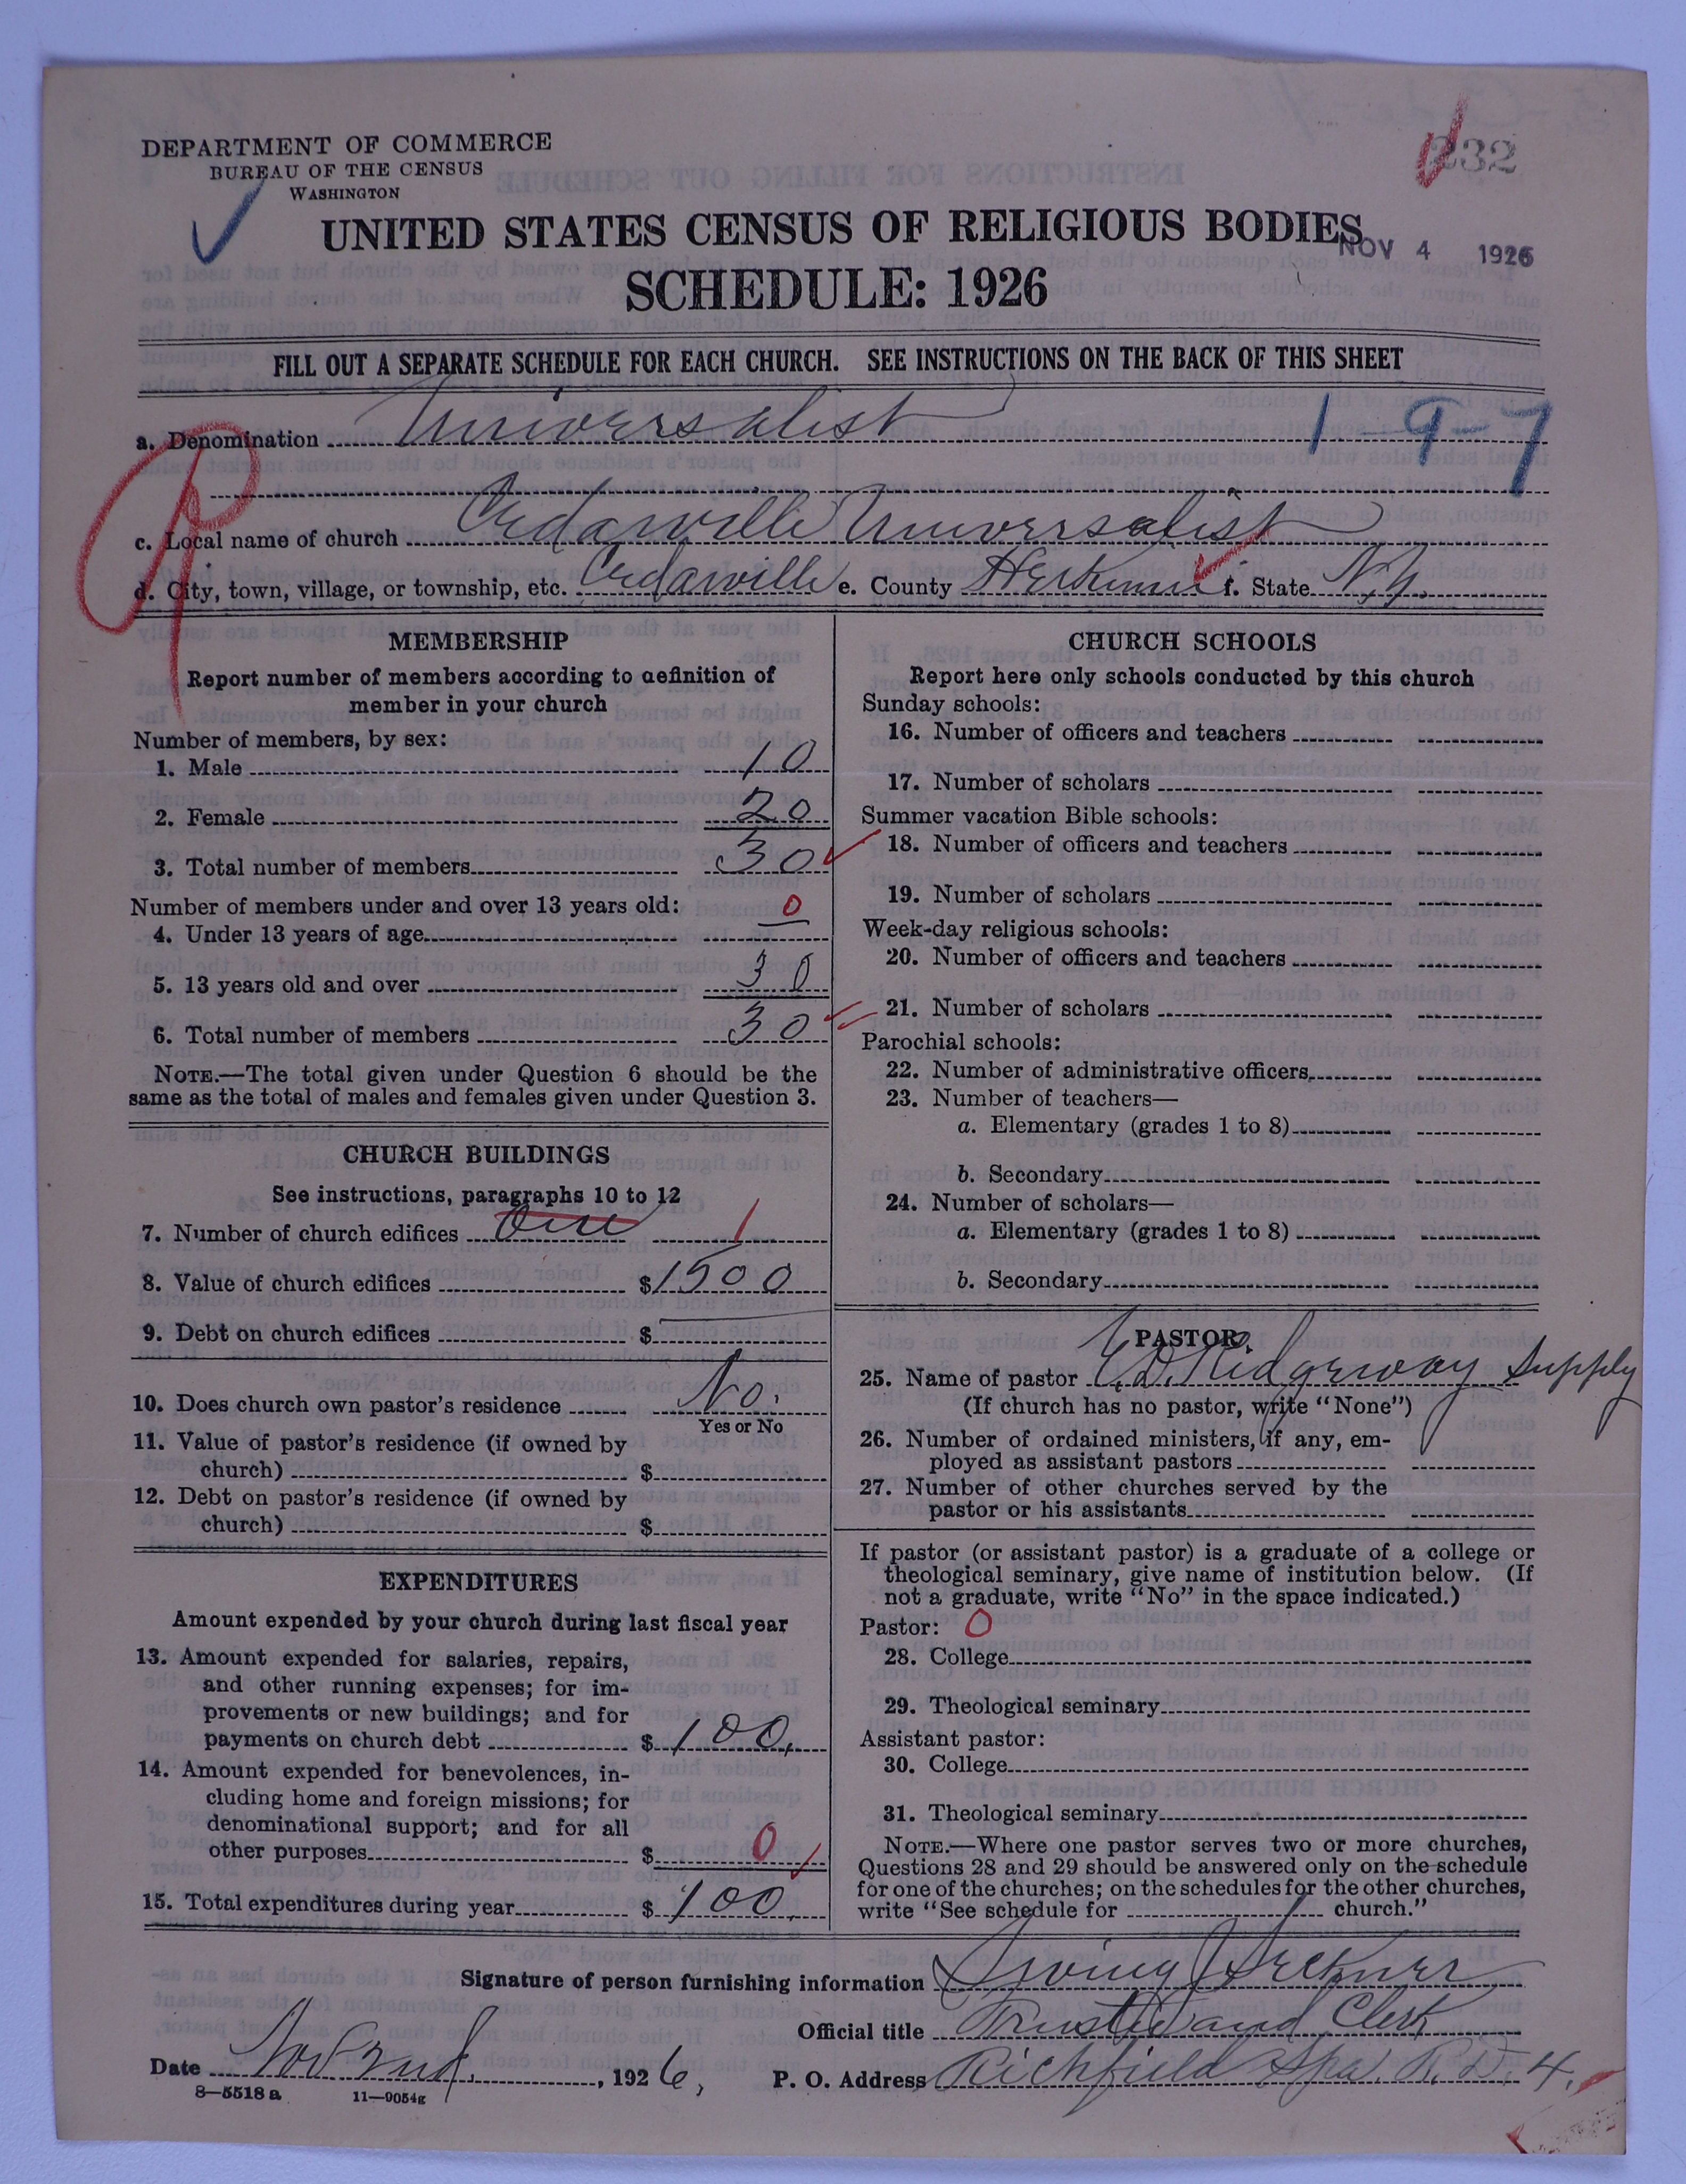 DEPARTMENT OF COMMERCE
BUREAU OF THE CENSUS
WASHINGTON
232
UNITED STATES CENSUS OF RELIGIOUS BODIES
NOV 4 1926
SCHEDULE: 1926
FILL OUT A SEPARATE SCHEDULE FOR EACH CHURCH. SEE INSTRUCTIONS ON THE BACK OF THIS SHEET
a. Denomination Universalist 1-9-7
c. Local name of church Cedarville Universalist
d. City, town, village, or township, etc. Cedarville e. County Herkimer f. State N.Y.
MEMBERSHIP
Report number of members according to definition of
member in your church
Number of members, by sex:
1. Male 10
2. Female 20
3. Total number of members 30
Number of members under and over 13 years old:
4. Under 13 years of age 0
5. 13 years old and over 30
6. Total number of members 30
NOTE.—The total given under Question 6 should be the
same as the total of males and females given under Question 3.
CHURCH BUILDINGS
See instructions, paragraphs 10 to 12
7. Number of church edifices One 1
8. Value of church edifices $1500
9. Debt on church edifices $
10. Does church own pastor's residence No.
Yes or No
11. Value of pastor's residence (if owned by
church) $
12. Debt on pastor's residence (if owned by
church) $
EXPENDITURES
Amount expended by your church during last fiscal year
13. Amount expended for salaries, repairs,
and other running expenses; for im-
provements or new buildings; and for
payments on church debt $100.
14. Amount expended for benevolences, in-
cluding home and foreign missions; for
denominational support; and for all
other purposes $ 0
15. Total expenditures during year $100.
CHURCH SCHOOLS
Report here only schools conducted by this church
Sunday schools:
16. Number of officers and teachers
17. Number of scholars
Summer vacation Bible schools:
18. Number of officers and teachers
19. Number of scholars
Week-day religious schools:
20. Number of officers and teachers
21. Number of scholars
Parochial schools:
22. Number of administrative officers
23. Number of teachers—
a. Elementary (grades 1 to 8)
b. Secondary
24. Number of scholars—
a. Elementary (grades 1 to 8)
b. Secondary
PASTOR
25. Name of pastor Ridgeway Supply
(If church has no pastor, write "None")
26. Number of ordained ministers, if any, em-
ployed as assistant pastors
27. Number of other churches served by the
pastor or his assistants
If pastor (or assistant pastor) is a graduate of a college or
theological seminary, give name of institution below. (If
not a graduate, write "No" in the space indicated.)
Pastor: 0
28. College
29. Theological seminary
Assistant pastor:
30. College
31. Theological seminary
NOTE.—Where one pastor serves two or more churches,
Questions 28 and 29 should be answered only on the schedule
for one of the churches; on the schedules for the other churches,
write "See schedule for church."
Signature of person furnishing information Irving
Official title Trustee and Clerk
Date Nov 2nd, 1926, P. O. Address Richfield Spa. R.D. 4.
8—5518 a 11—9054g